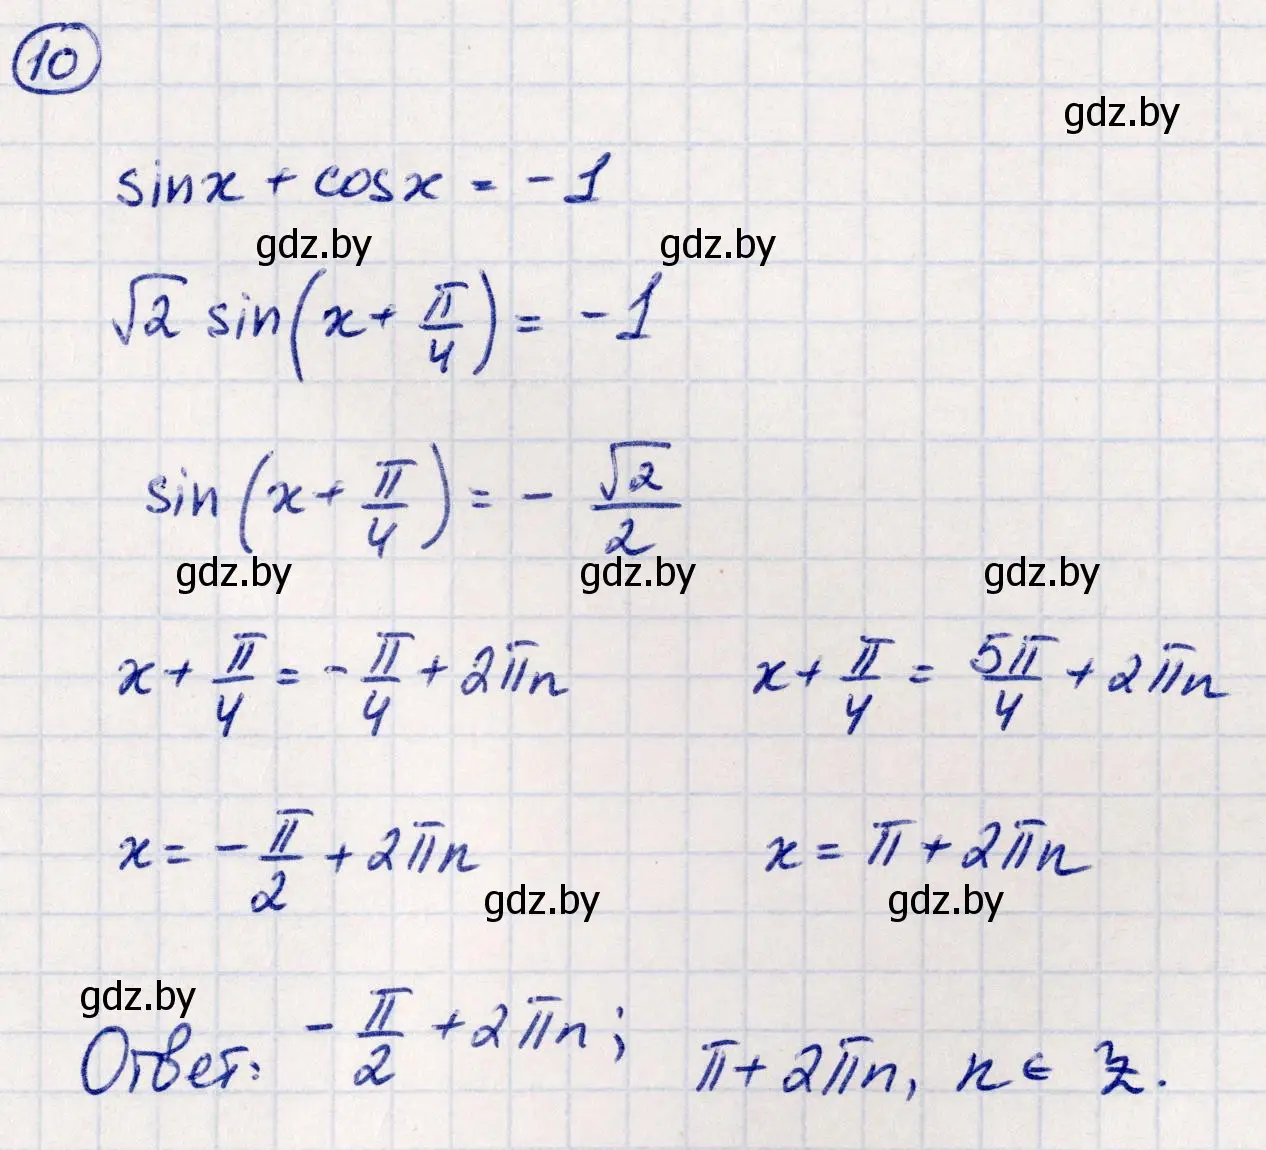 10
gdz.by
sinx + cosx = -1
gdz.by gdz.by
√2 sin(x + π/4) = -1
sin(x + π/4) = - √2/2
gdz.by gdz.by gdz.by
x + π/4 = - π/4 + 2πn x + π/4 = 5π/4 + 2πn
x = - π/2 + 2πn x = π + 2πn
gdz.by gdz.by
gdz.by
Ответ: - π/2 + 2πn; π + 2πn, n ∈ ℤ.